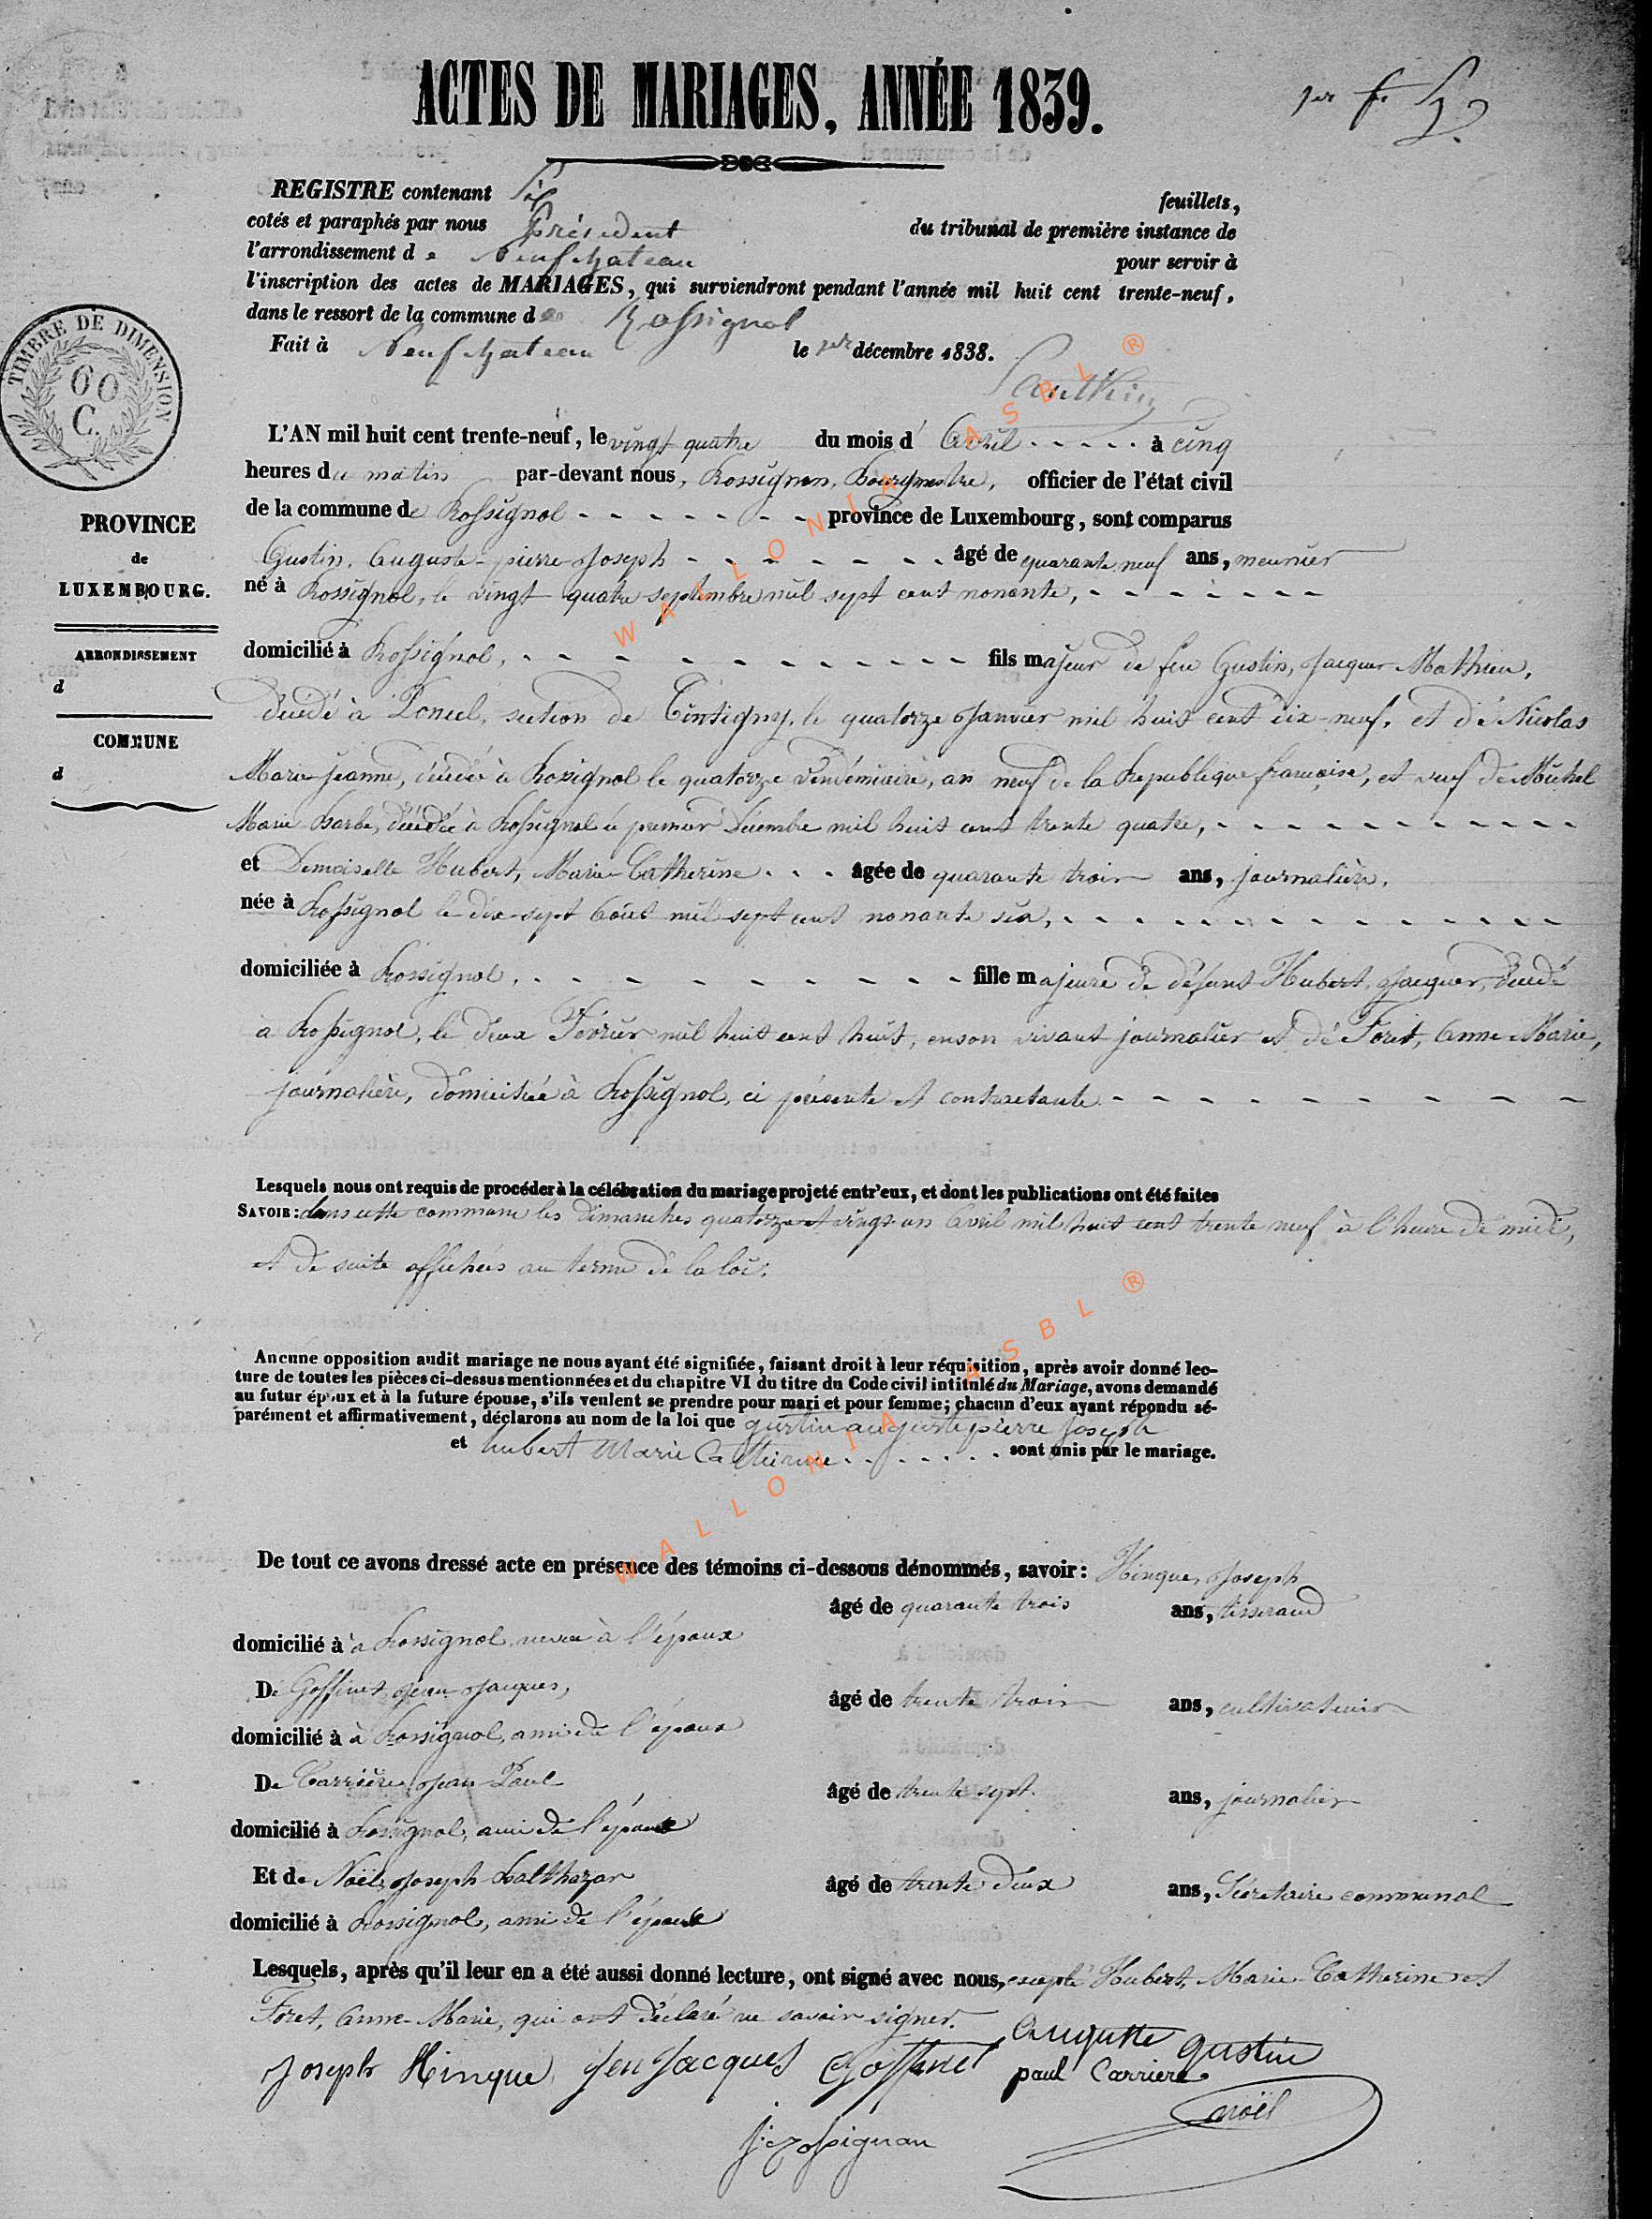 ACTES DE MARIAGES, ANNÉE 1839.
1er f.
REGISTRE contenant six feuillets,
cotés et paraphés par nous Président du tribunal de première instance de
l'arrondissement de Neufchateau pour servir à
l'inscription des actes de MARIAGES, qui surviendront pendant l'année mil huit cent trente-neuf,
dans le ressort de la commune de Rossignol
Fait à Neufchateau le 1er décembre 1838.
TIMBRE DE DIMENSION
60
C.
PROVINCE
de
LUXEMBOURG.
ARRONDISSEMENT
d
COMMUNE
d
L'AN mil huit cent trente-neuf, le vingt quatre du mois d'Avril - - - - - à cinq
heures du matin par-devant nous, Rossignon, Bourgmestre, officier de l'état civil
de la commune de Rossignol - - - - - - - - province de Luxembourg, sont comparus
Gustin, Auguste-pierre-Joseph - - - - - - - âgé de quarante neuf ans, meunier
né à Rossignol, le vingt quatre septembre mil sept cent nonante, - - - - - - -
domicilié à Rossignol, - - - - - - - - - - - - fils majeur de feu Gustin, Jacques Mathieu,
décédé à Poncel, section de Tintigny, le quatorze Janvier mil huit cent dix-neuf, et de Nicolas
Marie-Jeanne, décédée à Rossignol le quatorze Vendémiaire, an neuf de la République française, et veuf de Michel
Marie-Barbe, décédée à Rossignol le premier Décembre mil huit cent trente quatre, - - - - - - - - - - -
et Demoiselle Hubert, Marie-Catherine - - - âgée de quarante trois ans, journalière,
née à Rossignol le dix-sept Août mil sept cent nonante six, - - - - - - - - - - - - - -
domiciliée à Rossignol, - - - - - - - - - - fille majeure de défunt Hubert, Jacques, décédé
à Rossignol, le deux Février mil huit cent huit, en son vivant journalier et de Foret, Anne-Marie,
journalière, domiciliée à Rossignol, ci présente et contractante - - - - - - - - - -
Lesquels nous ont requis de procéder à la célébration du mariage projeté entr'eux, et dont les publications ont été faites
SAVOIR: dans cette commune les Dimanches quatorze et vingt-un Avril mil huit cent trente neuf à l'heure de midi,
et de suite affichées au terme de la loi.
Aucune opposition audit mariage ne nous ayant été signifiée, faisant droit à leur réquisition, après avoir donné lec-
ture de toutes les pièces ci-dessus mentionnées et du chapitre VI du titre du Code civil intitulé du Mariage, avons demandé
au futur époux et à la future épouse, s'ils veulent se prendre pour mari et pour femme; chacun d'eux ayant répondu sé-
parément et affirmativement, déclarons au nom de la loi que gustin auguste pierre Joseph
et hubert Marie Catherine - - - - - - - sont unis par le mariage.
De tout ce avons dressé acte en présence des témoins ci-dessous dénommés, savoir: Hinque, Joseph
âgé de quarante trois ans, tisserand
domicilié à à Rossignol neveu à l'époux
De Goffinet Jean-Jacques,
âgé de trente trois ans, cultivateur
domicilié à à Rossignol, ami de l'époux
De Carrière, Jean-Paul
âgé de trente sept ans, journalier
domicilié à Rossignol, ami de l'époux
Et de Noël, Joseph Balthazar
âgé de trente Deux ans, Sécretaire communal
domicilié à Rossignol, ami de l'époux
Lesquels, après qu'il leur en a été aussi donné lecture, ont signé avec nous, excepté Hubert, Marie-Catherine et
Foret, Anne-Marie, qui ont déclaré ne savoir signer.
Auguste gustin
Joseph Hinque Jen Jacques Goffinet paul Carriere
noël
J: Rossignon
WALLONIA ASBL ®
WALLONIA ASBL ®